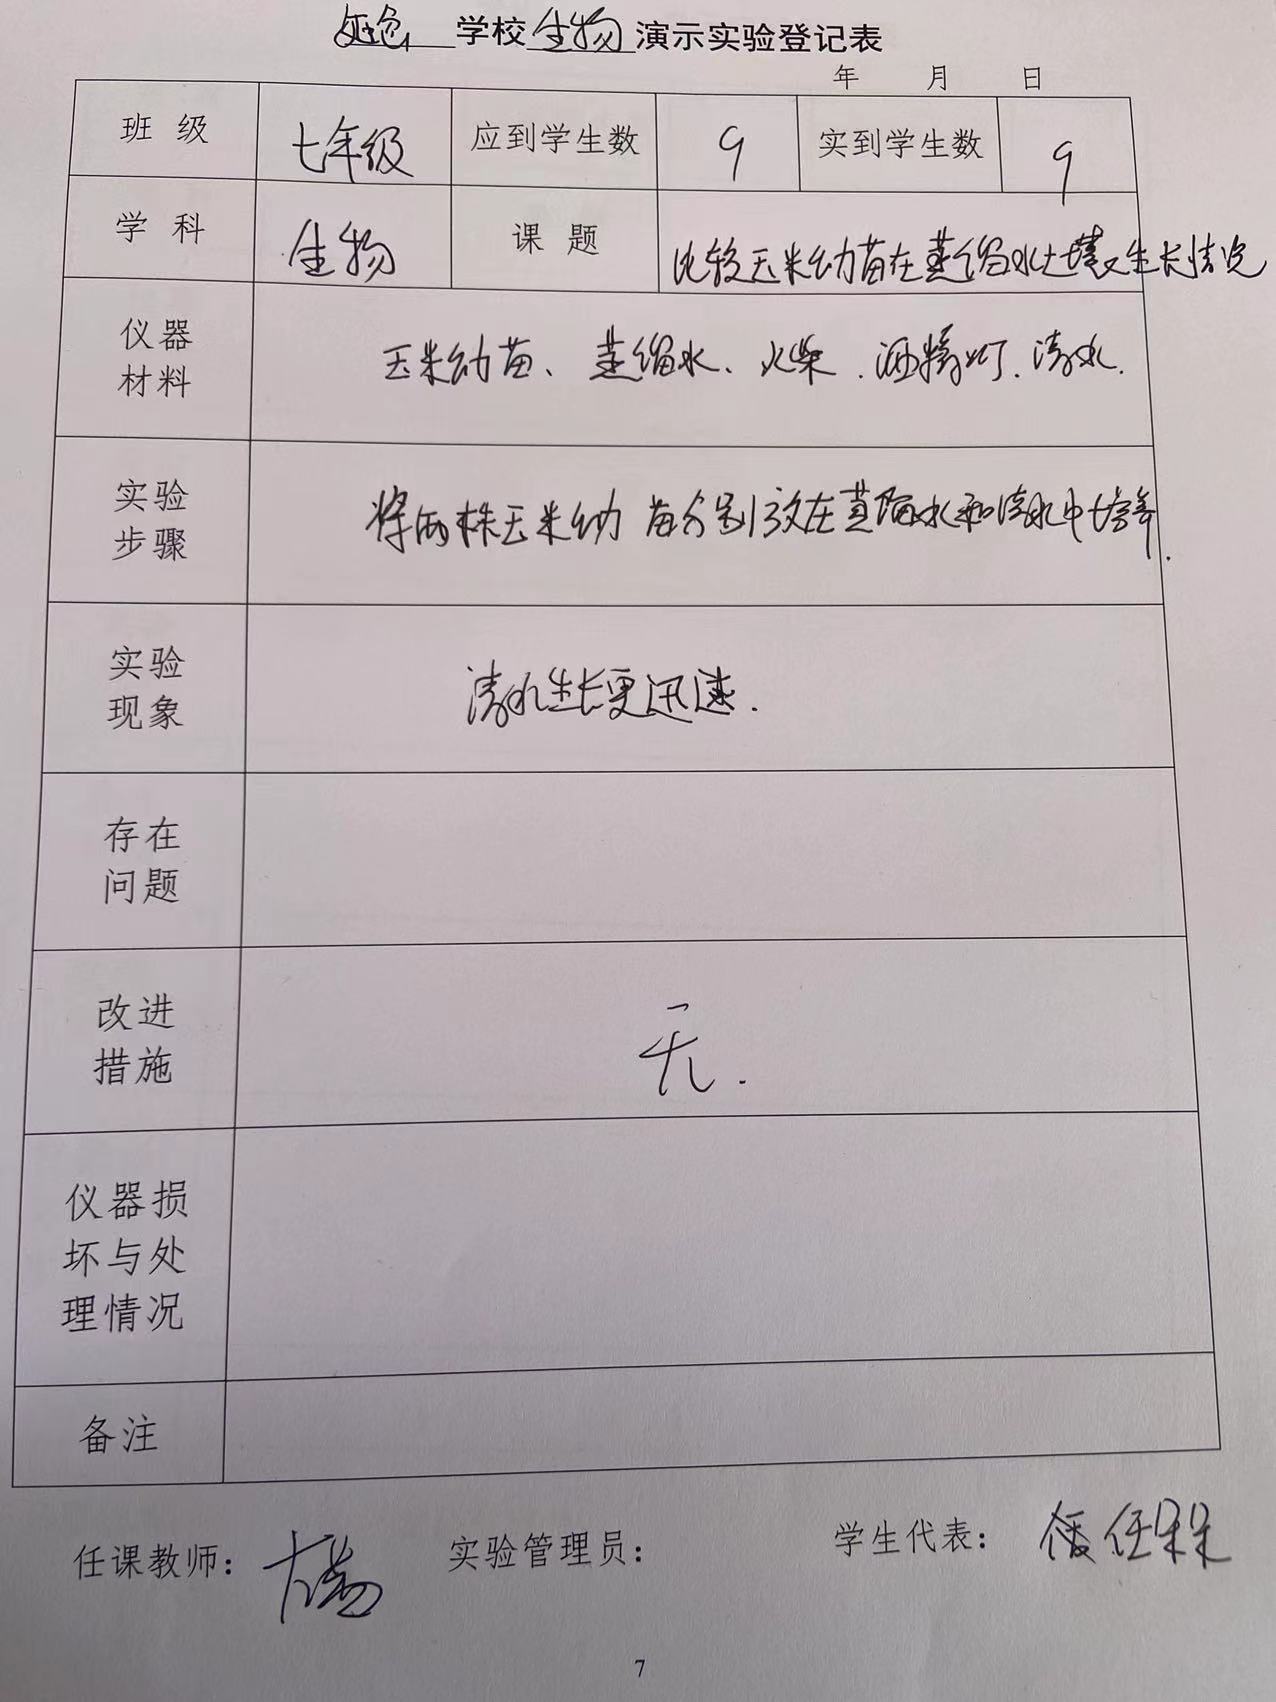 学校生物演示实验登记表
年 月 日
班 级 七年级 应到学生数 9 实到学生数 9
学 科 生物 课 题 比较玉米幼苗在蒸馏水土壤生长情况
仪器
材料
玉米幼苗、蒸馏水、火柴.酒精灯.清水.
实验
步骤
将两株玉米幼苗分别放在蒸馏水和清水中培养.
实验
现象
清水生长更迅速.
存在
问题
改进
措施
无.
仪器损
坏与处
理情况
备注
任课教师: 实验管理员: 学生代表:
7